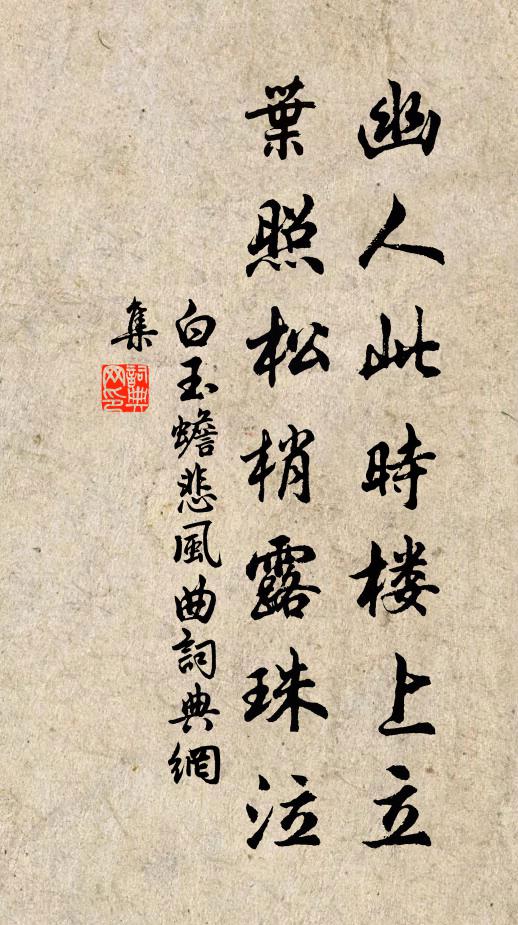 幽人此時楼上立
葉照松梢露珠泣
白玉蟾悲風曲詞典網
集
詞典网印